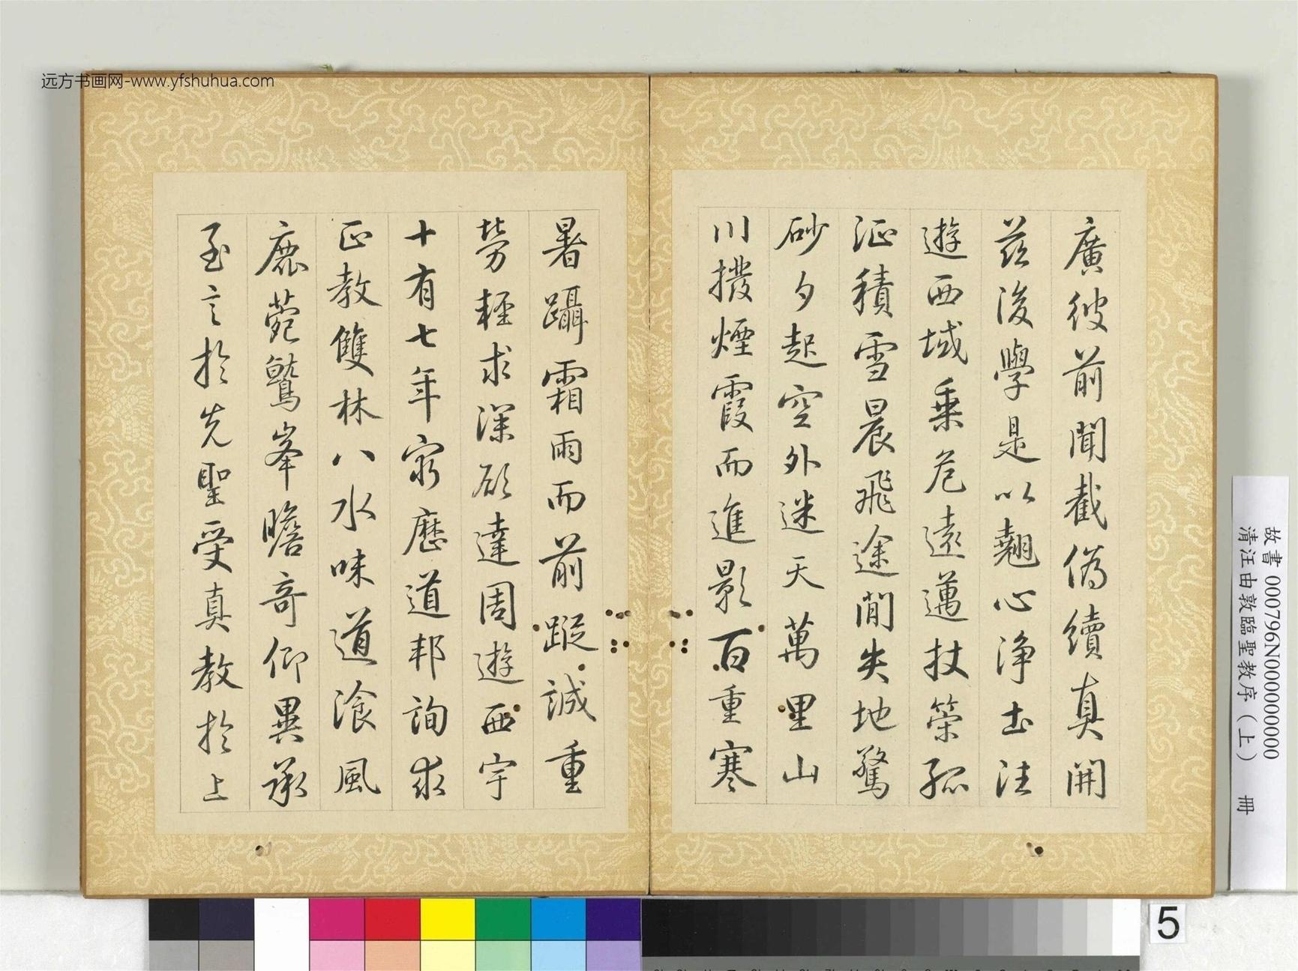 远方书画网-www.yfshuhua.com
廣彼前聞截偽續真開
茲後學是以翹心淨土法
遊西域乘危遠邁杖策孤
征積雪晨飛途閒失地驚
砂夕起空外迷天萬里山
川撥煙霞而進影百重寒
暑躡霜雨而前蹤誠重
勞輕求深願達周遊西宇
十有七年窮歷道邦詢求
正教雙林八水味道飡風
鹿菀鷲峯瞻奇仰異承
至言於先聖受真教於上
故書 000796N000000000
清汪由敦臨聖教序(上) 冊
5